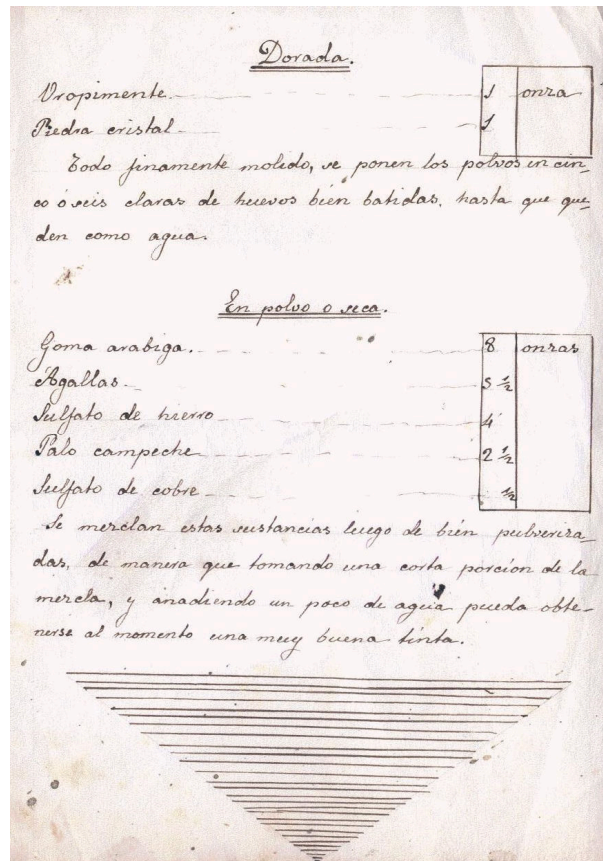 Dorada.
Oropimente 1 onza
Piedra cristal 1
Todo finamente molido, se ponen los polvos en cin-
co ó seis claras de huevos bien batidas, hasta que que-
den como agua.
En polvo o seca.
Goma arabiga. 8 onzas
Agallas 5 ½
Sulfato de hierro 4
Palo campeche 2 ½
Sulfato de cobre ½
Se mezclan estas sustancias luego de bién pulveriza-
das, de manera que tomando una corta porción de la
mezcla, y anadiendo un poco de agua pueda obte-
nerse al momento una muy buena tinta.